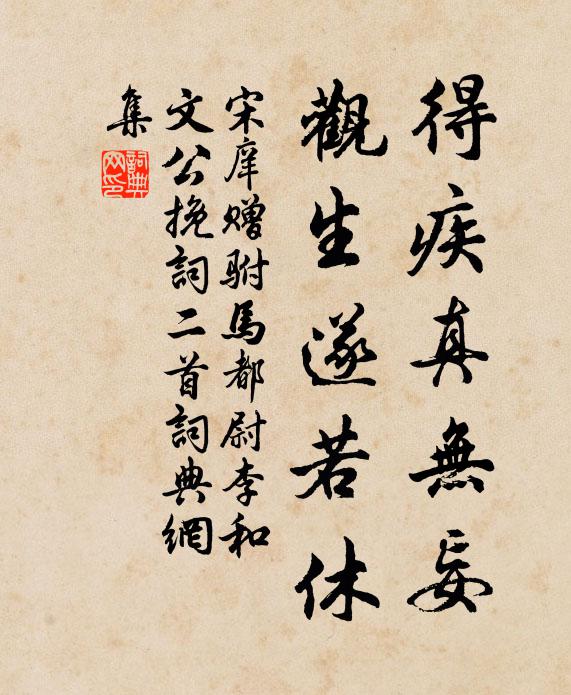 得疾真無妄
觀生遂若休
宋庠赠駙馬都尉李和
文公挽詞二首詞典網
集
詞典
网印